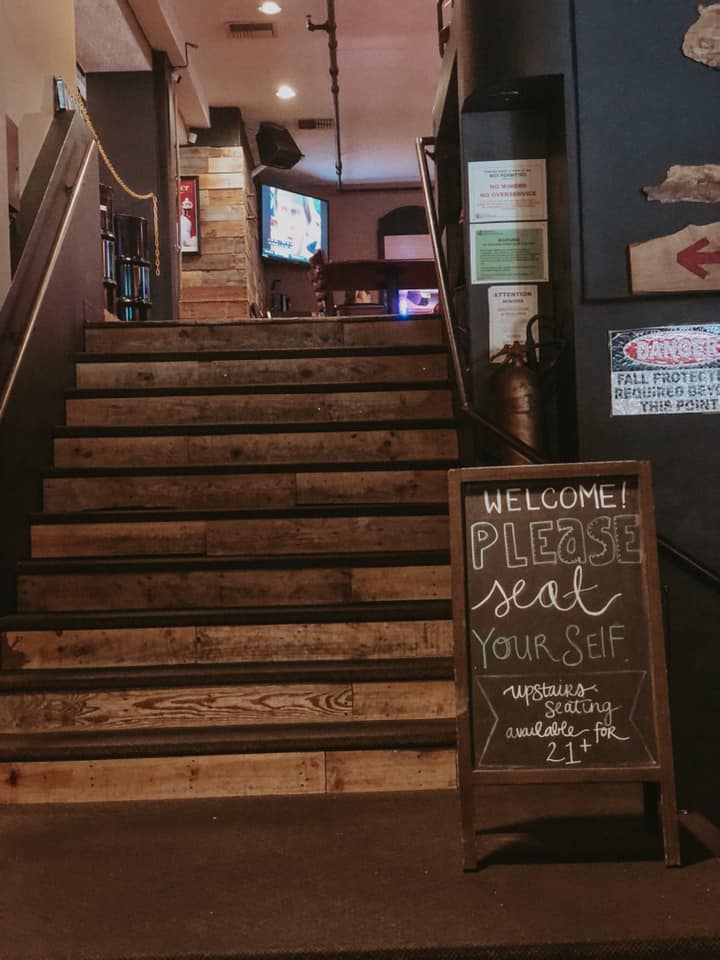 NOT PERMITTED
NO MINORS
NO OVERSERVICE
ATTENTION
MINORS
DANGER
FALL PROTECT
REQUIRED BEY
THIS POINT
WELCOME!
PLEASE
seat
YOUR SELF
upstairs
seating
available for
21+